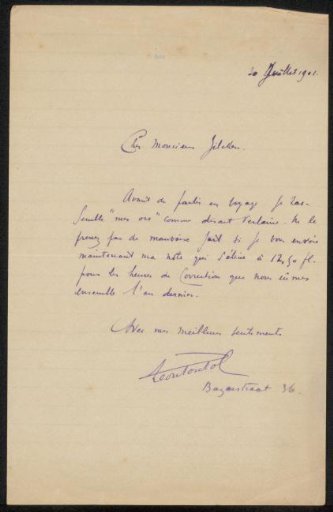 20 Juillet 1901.
Cher Monsieur Zilcken.
Avant de partir en voyage je ras-
semble "mes os" comme disait Verlaine. Ne le
prenez pas de mauvaise part si je vous envoie
maintenant ma note qui s'élève à 12,50 fl.
pour les heures de Correction que nous eûmes
ensemble l'an dernier.
Avec mes meilleurs sentiments
Bazarstraat 36.